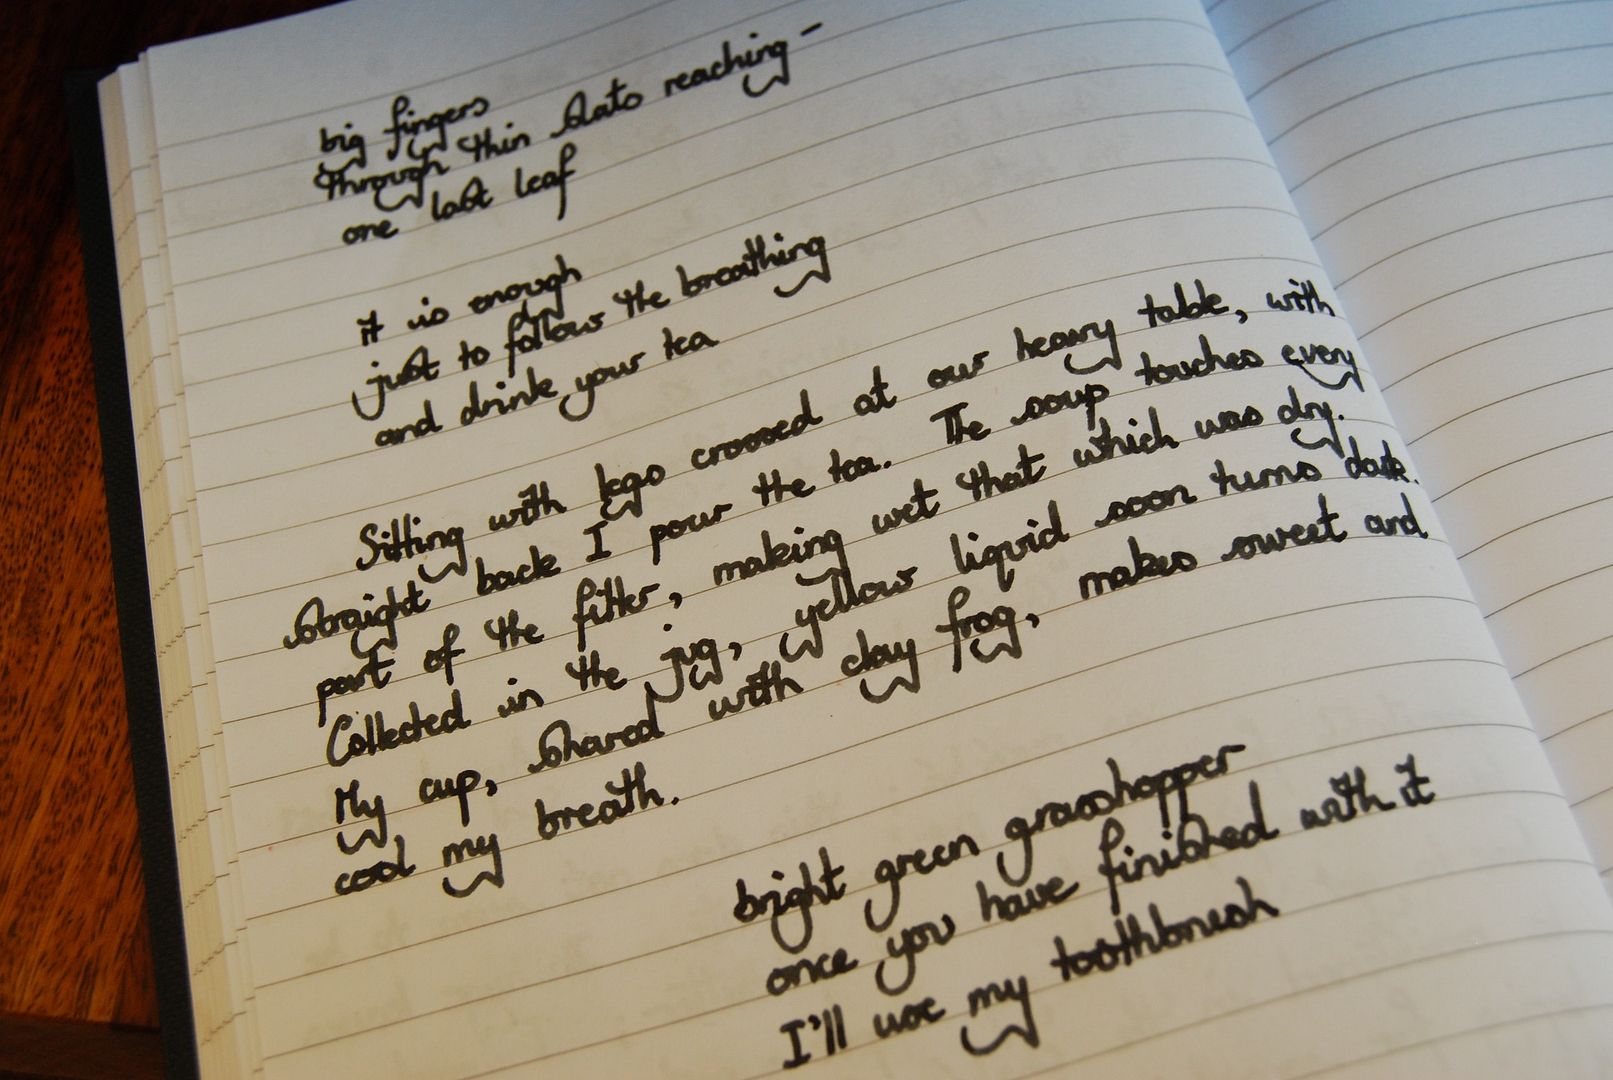 big fingers
through thin slats reaching -
one last leaf
it is enough
just to follow the breathing
and drink your tea
Sitting with legs crossed at our heavy table, with
straight back I pour the tea. The soup touches every
part of the filter, making wet that which was dry.
Collected in the jug, yellow liquid soon turns dark.
My cup, shared with clay frog, makes sweet and
cool my breath.
bright green grasshopper
once you have finished with it
I'll use my toothbrush